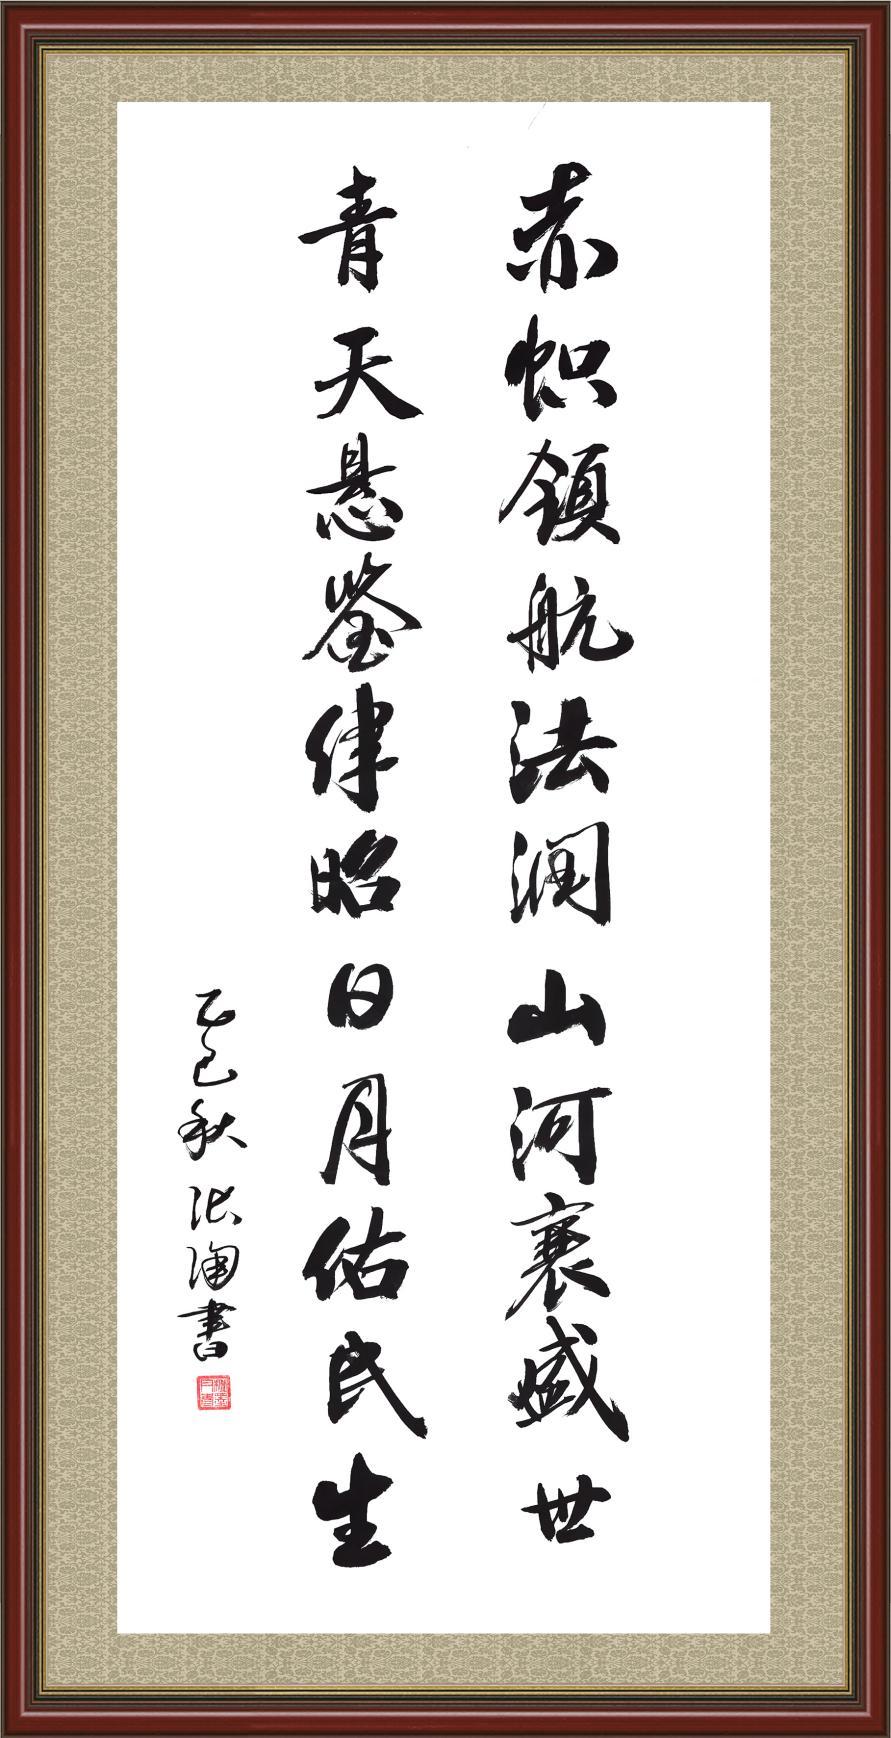 赤帜领航法润山河襄盛世
青天悬鉴律昭日月佑民生
乙巳秋 张海书